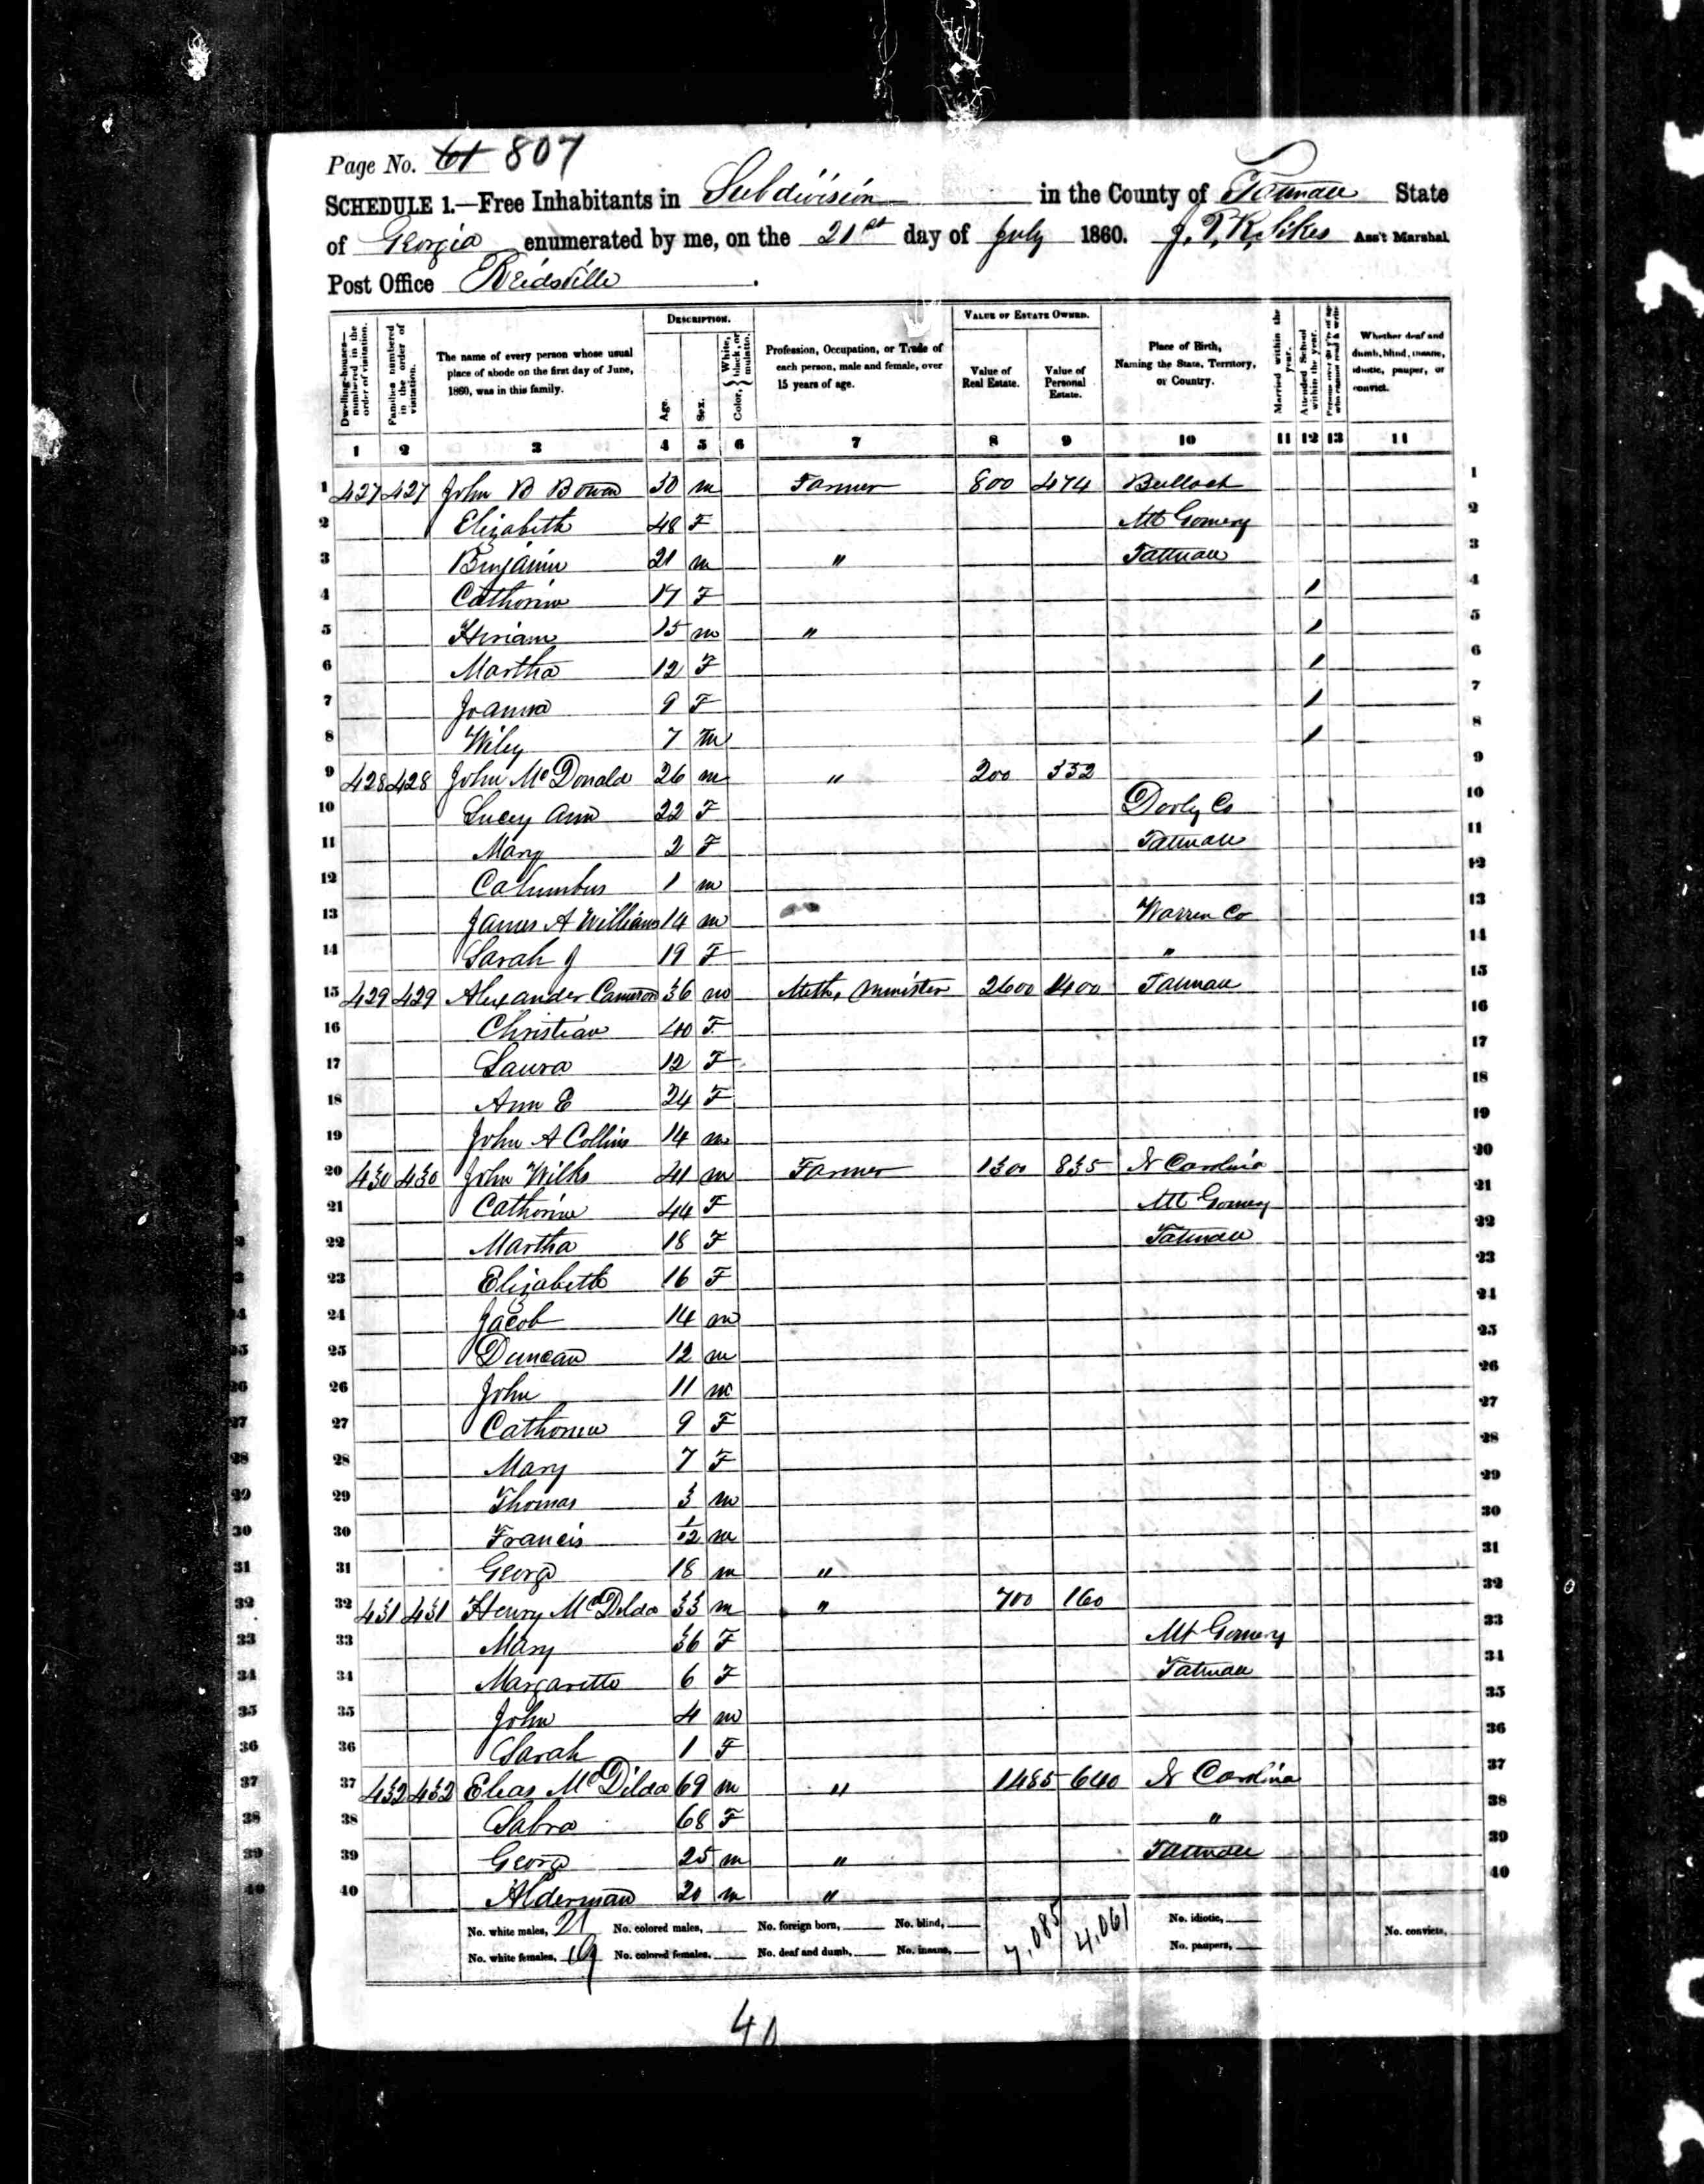 Page No. 61 807
SCHEDULE 1.—Free Inhabitants in Subdivision in the County of Tatnall State
of Georgia enumerated by me, on the 21st day of July 1860. J. T. R. Sikes Ass't Marshal
Post Office Reidsville.
Dwelling-houses—numbered in the order of visitation.
Families numbered in the order of visitation.
The name of every person whose usual place of abode on the first day of June, 1860, was in this family.
DESCRIPTION.
Age.
Sex.
White, black, or mulatto.
Color,
Profession, Occupation, or Trade of each person, male and female, over 15 years of age.
VALUE OF ESTATE OWNED.
Value of Real Estate.
Value of Personal Estate.
Place of Birth, Naming the State, Territory, or Country.
Married within the year.
Attended School within the year.
Whether deaf and dumb, blind, insane, idiotic, pauper, or convict.
1 2 3 4 5 6 7 8 9 10 11 12 13 14
1 427 427 John B Bowen 50 m Farmer 800 474 Bulloch 1
2 Elizabeth 48 F Mt Gomery 2
3 Benjamin 21 m " Tattnall 3
4 Catherine 17 F / 4
5 Hiriam 15 m " / 5
6 Martha 12 F / 6
7 Joanna 9 F / 7
8 Wiley 7 m / 8
9 428 428 John McDonald 26 m " 200 332 9
10 Lucey Ann 22 F Dooly Co 10
11 Mary 2 F Tatnall 11
12 Columbus 1 m 12
13 James A Williams 14 m Warren Co 13
14 Sarah J 19 F " 14
15 429 429 Alexander Cameron 36 m Meth. Minister 2600 1400 Tatnall 15
16 Christian 40 F 16
17 Laura 12 F 17
18 Ann E 24 F 18
19 John A Collins 14 m 19
20 430 430 John Wilks 41 m Farmer 1300 835 N Carolina 20
21 Catherine 44 F Mt Gomery 21
22 Martha 18 F Tatnall 22
23 Elizabeth 16 F 23
24 Jacob 14 m 24
25 Duncan 12 m 25
26 John 11 m 26
27 Catherine 9 F 27
28 Mary 7 F 28
29 Thomas 3 m 29
30 Francis 1/12 m 30
31 George 18 m " 31
32 431 431 Henry McDilda 33 m " 700 160 32
33 Mary 36 F Mt Gomery 33
34 Margarette 6 F Tatnall 34
35 John 4 m 35
36 Sarah 1 F 36
37 432 432 Elias McDilda 69 m " 1485 640 N Carolina 37
38 Sabra 68 F " 38
39 George 25 m " Tattnall 39
40 Alderman 20 m " 40
No. white males, 21 No. colored males, No. foreign born, No. blind, 7,085 4,061 No. idiotic, No. convicts,
No. white females, 19 No. colored females, No. deaf and dumb, No. insane, No. paupers,
40